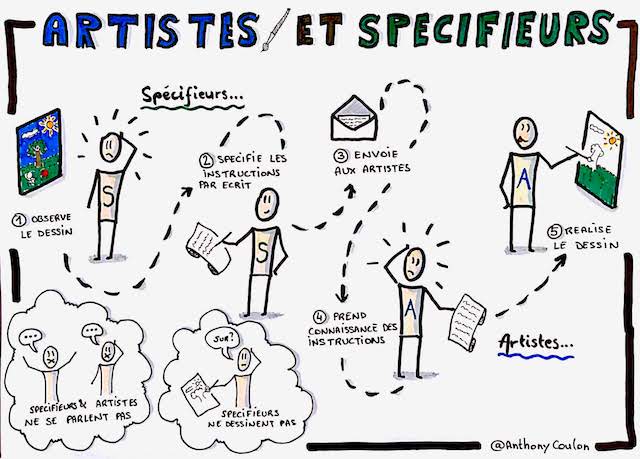 ARTISTES ET SPECIFIEURS
Spécifieurs...
① OBSERVE
LE DESSIN
S
② SPECIFIE LES
INSTRUCTIONS
PAR ECRIT
S
③ ENVOIE
AUX ARTISTES
④ PREND
CONNAISSANCE DES
INSTRUCTIONS
A
A
⑤ REALISE
LE DESSIN
Artistes...
SPECIFIEURS & ARTISTES
NE SE PARLENT PAS
SUR?
SPECIFIEURS
NE DESSINENT PAS
@Anthony Coulon